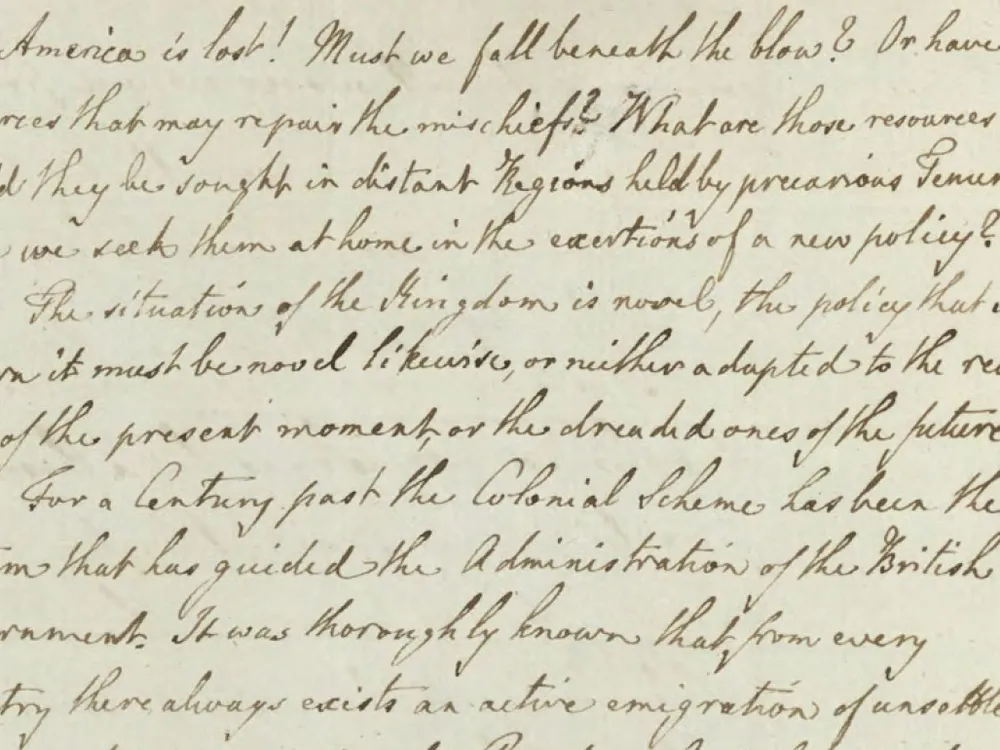 America is lost! Must we fall beneath the blow? Or have
rces that may repair the mischiefs? What are those resources
d they be sought in distant Regions held by precarious Tenur
we seek them at home in the exertions of a new policy?
The situation of the Kingdom is novel, the policy that
rn it must be novel likewise, or neither adapted to the rea
of the present moment, or the dreaded ones of the future
For a Century past the Colonial Scheme has been the
m that has guided the Administration of the British
rnment. It was thoroughly known that, from every
try there always exists an active emigration of unsettle